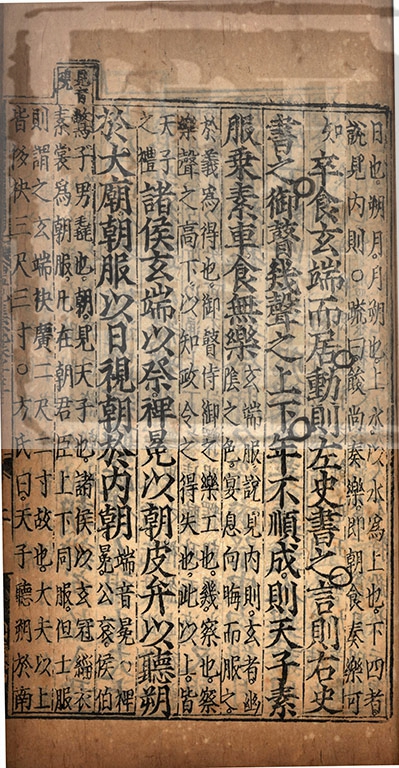 日也朔月月朔也上水以水爲上也下四者
說見内則○疏曰餕尚奏樂即朝食奏樂可
知卒食玄端而居動則左史書之言則右史
書之御瞽幾聲之上下年不順成則天子素
服乘素車食無樂玄端服說見内則玄者幽
隂之色宴息向晦而服之
於義爲得也御瞽侍御之樂工也幾察也察
樂聲之高下以知政令之得失也此以上皆
天子
之禮諸侯玄端以祭裨冕以朝皮弁以聽朔
於大廟朝服以日視朝於内朝端音冕裨
冕公衮侯伯
鷩子男毳也朝見天子也諸侯以玄冠緇衣
素裳爲朝服凡在朝君臣上下同服但士服
則謂之玄端袂廣二尺二寸故也大夫以上
皆侈袂三尺三寸○方氏曰天子聽朔於南